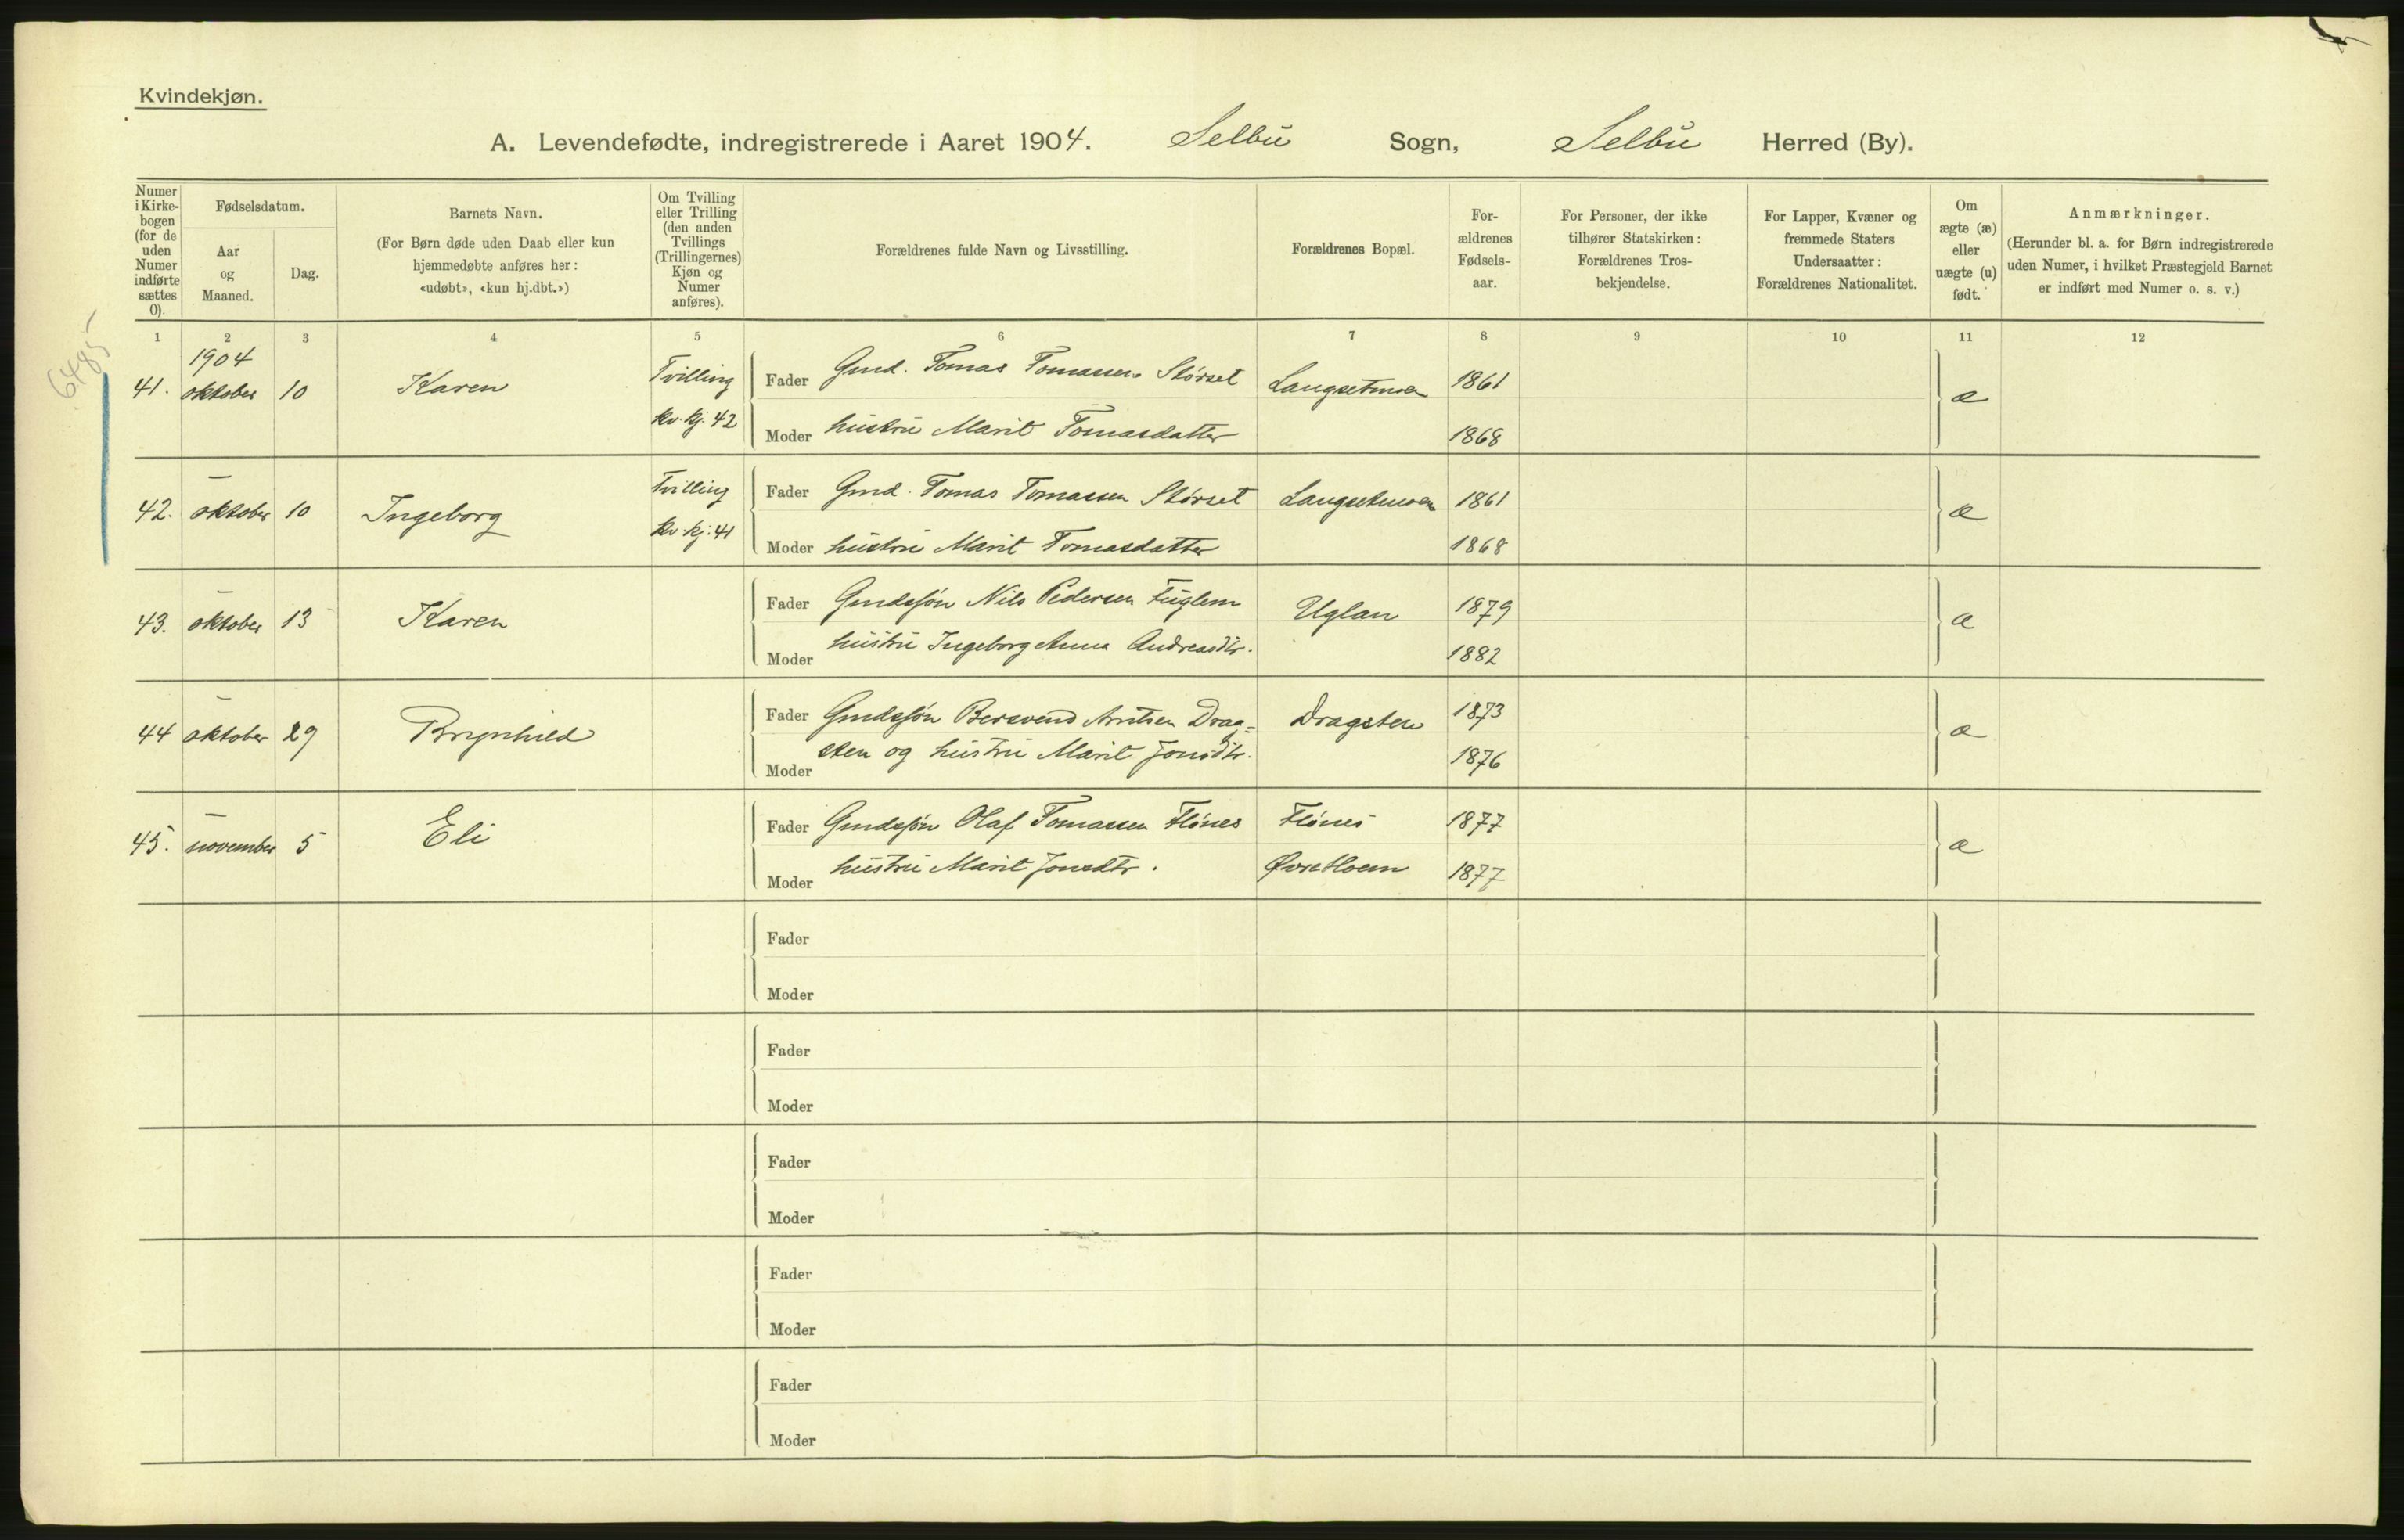 Kvindekjøn.
A. Levendefødte, indregistrerede i Aaret 1904. Selbu Sogn, Selbu Herred (By).
Numer i Kirkebogen (for de uden Numer indførte sættes 0).
Fødselsdatum.
Aar og Maaned.
Dag.
Barnets Navn.
(For Børn døde uden Daab eller kun
hjemmedøbte anføres her:
«udøbt», «kun hj.dbt.»)
Om Tvilling
eller Trilling
(den anden
Tvillings
(Trillingernes)
Kjøn og
Numer
anføres).
Forældrenes fulde Navn og Livsstilling.
Forældrenes Bopæl.
For-
ældrenes
Fødsels-
aar.
For Personer, der ikke
tilhører Statskirken:
Forældrenes Tros-
bekjendelse.
For Lapper, Kvæner og
fremmede Staters
Undersaatter:
Forældrenes Nationalitet.
Om
ægte (æ)
eller
uægte (u)
født.
Anmærkninger.
(Herunder bl. a. for Børn indregistrerede
uden Numer, i hvilket Præstegjeld Barnet
er indført med Numer o. s. v.)
1 2 3 4 5 6 7 8 9 10 11 12
6485
1904
41. oktober 10 Karen Tvilling Fader Gmd. Tomas Tomassen Størset Langsetmoen 1861 æ
kv. kj. 42 Moder hustru Marit Tomasdatter 1868
42. – oktober 10 Ingeborg Tvilling Fader Gmd. Tomas Tomassen Størset Langsetmoen 1861 æ
kv. kj. 41 Moder hustru Marit Tomasdatter 1868
43. – oktober 13 Karen Fader Gmdssøn Nils Pedersen Fuglem Uglan 1879 æ
Moder hustru Ingeborg Anna Andreasdtr. 1882
44 – oktober 29 Brynhild Fader Gmdssøn Bersvend Arntsen Drag= Dragsten 1873 æ
Moder sten og hustru Marit Jonsdtr. 1876
45. – november 5 Eli Fader Gmdssøn Olaf Tomassen Flönes Flönes 1877 æ
Moder hustru Marit Jonsdtr. Øvre Moen 1877
Fader
Moder
Fader
Moder
Fader
Moder
Fader
Moder
Fader
Moder